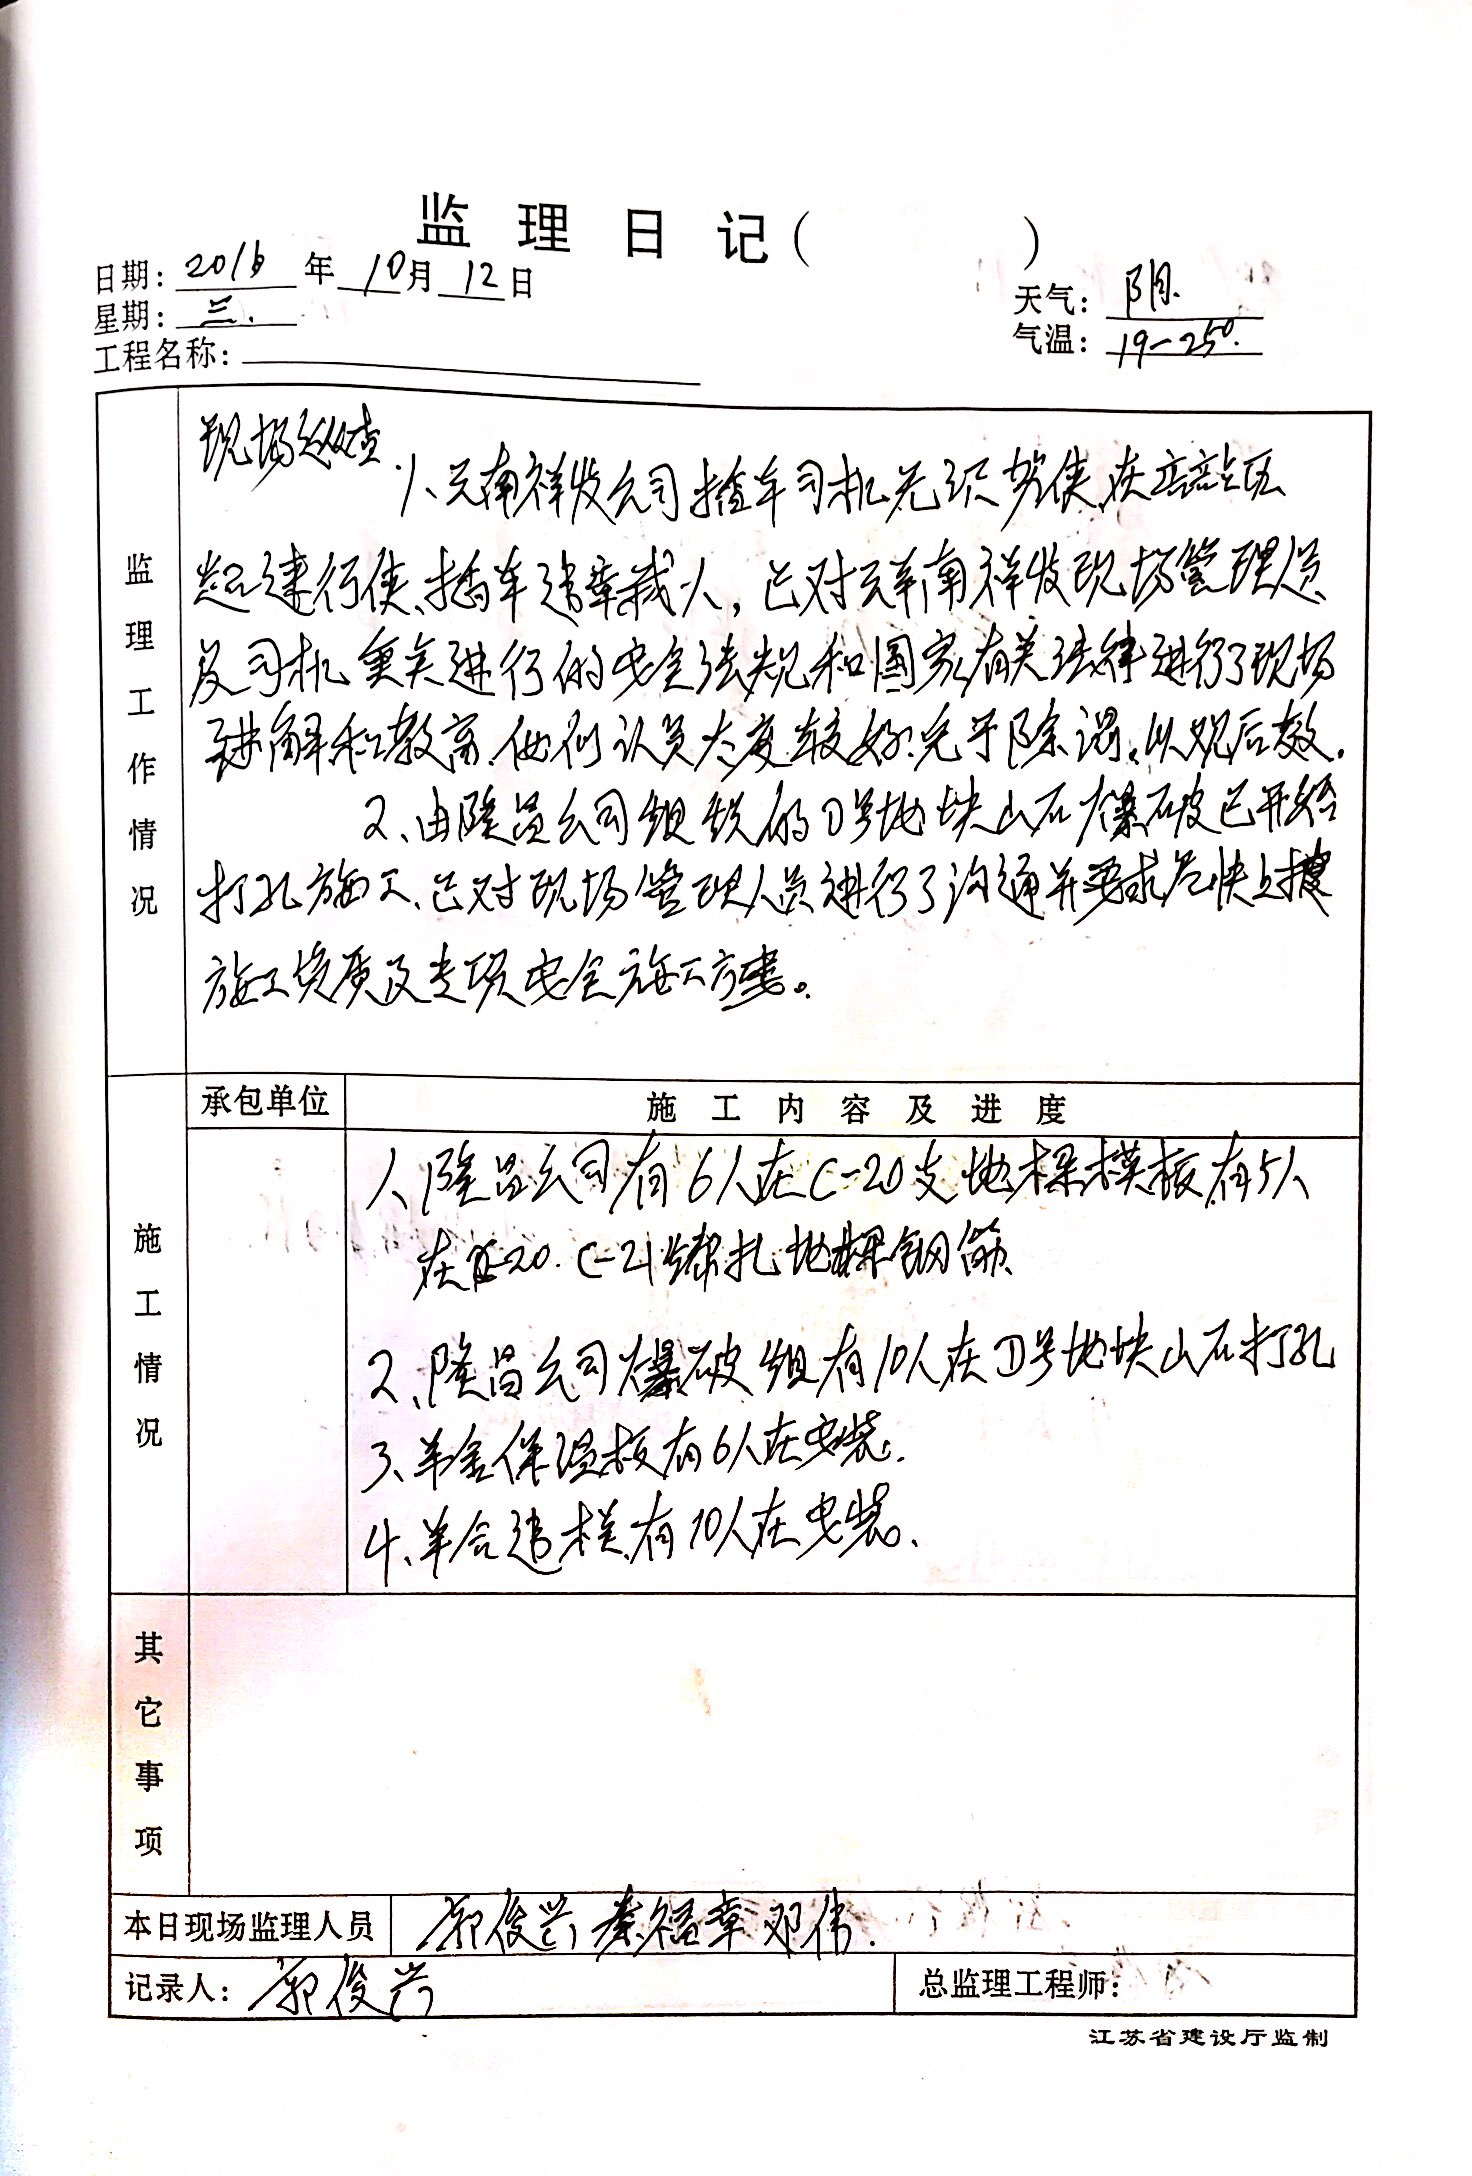 监理日记(　　　)
日期：2016年10月12日
星期：三.
天气：阴.
气温：19-25°.
工程名称：
监理工作情况
现场巡查
1、云南祥发公司 车司机无证驾使、在 区
超速行使、 车违章载人，已对云南祥发现场管理员
及司机 进行的安全法规和国家有关法律进行了现场
讲解和教育、他们认 态度较好、 以观后效。
2、由隆昌公司组织的D号地块山石爆破已开始
打孔施工、已对现场管理人员进行了沟通并要求尽快上报
施工资质及专项安全施工方案。
承包单位
施工内容及进度
施工情况
1、隆昌公司有6人在C-20支地梁模板、有5人
在 -20. C-21绑扎地梁钢筋、
2、隆昌公司爆破组有10人在D号地块山石打孔
3、羊舍保温板有6人在安装。
4、羊舍 有10人在安装。
其它事项
本日现场监理人员 郭俊兴 秦福章 邓伟.
记录人：郭俊兴
总监理工程师：
江苏省建设厅监制